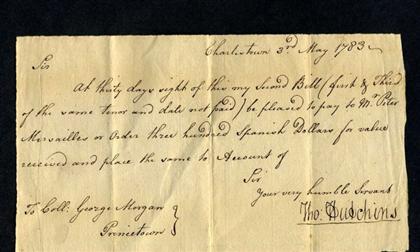 Charlestown 3rd May 1783
Sir
At thirty days sight of this my Second Bill (first & Third
of the same tenor and date not paid) be pleased to pay to Mr. Peter
Mersailles or Order three hundred Spanish Dollars for value
received and place the same to Account of
Sir
Your very humble Servant
Tho: Hutchins
To Coll: George Morgan
Princetown